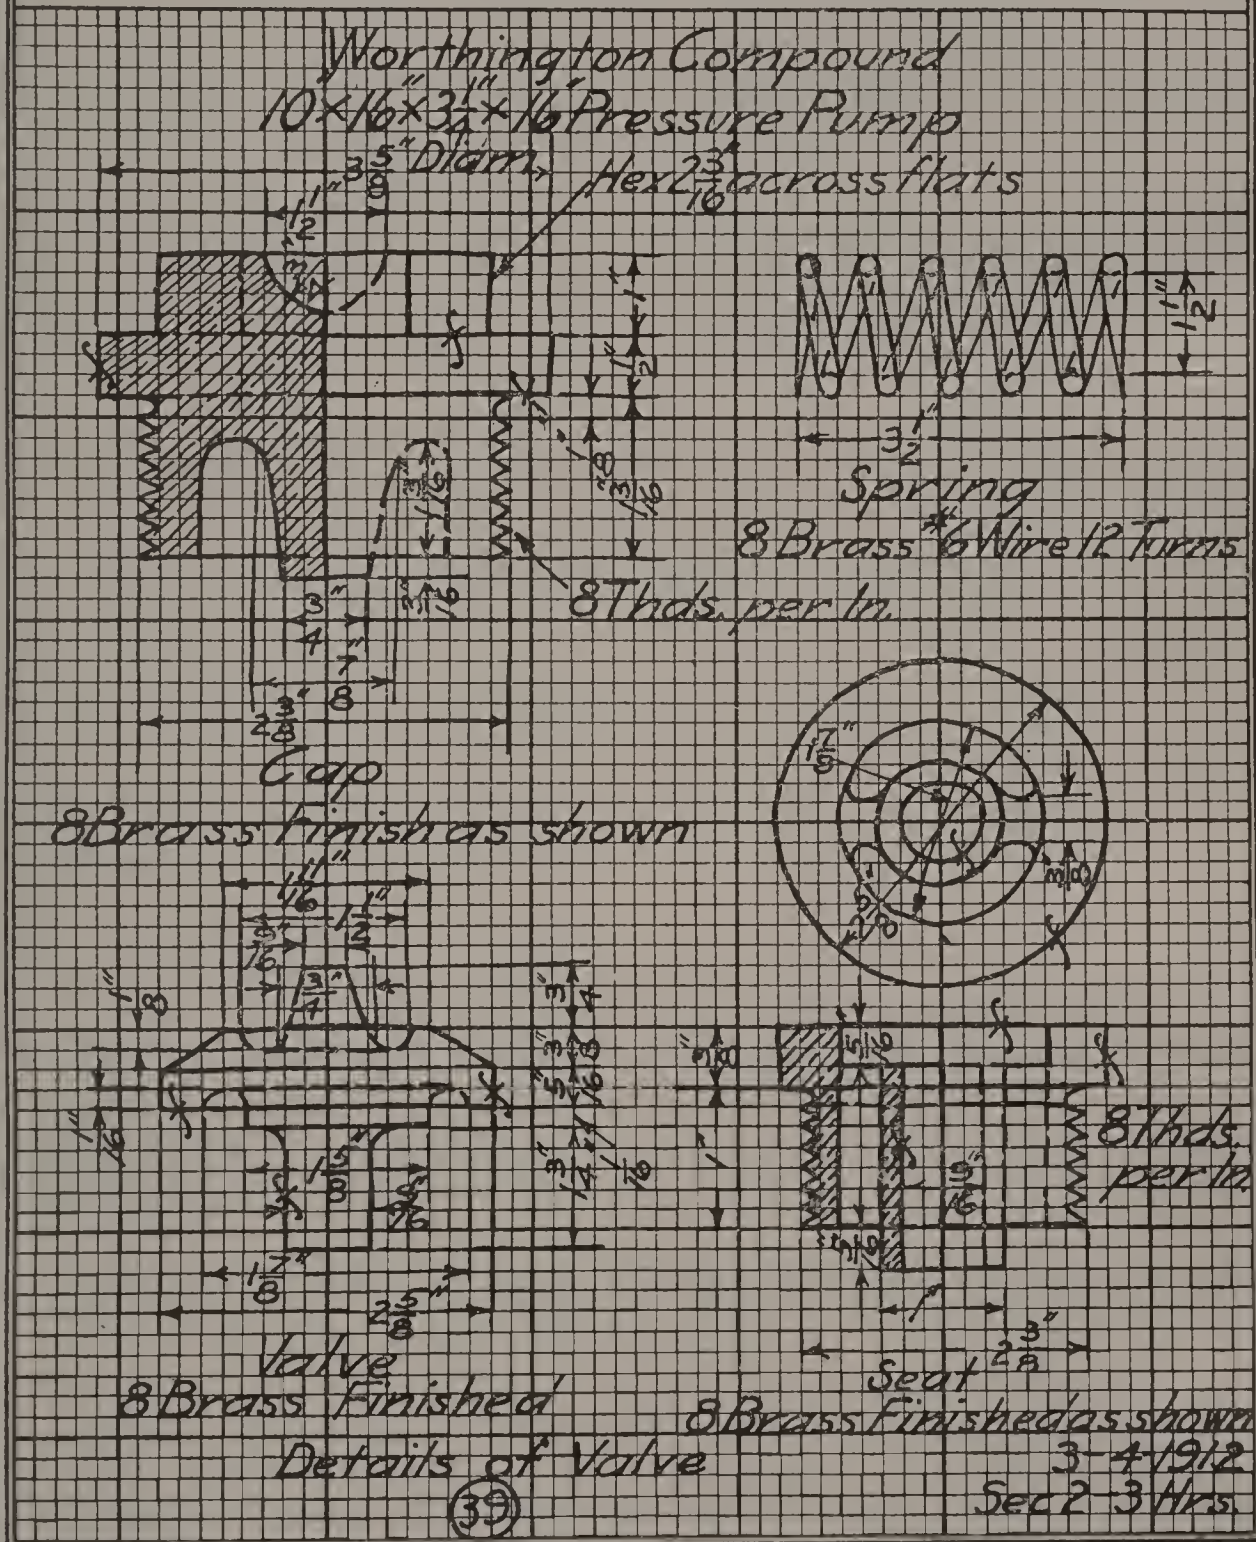 Worthington Compound
10"×16"×3 1/4"×16" Pressure Pump
3 5/8" Diam.
Hex 2 3/16" across flats
1 1/2"
3/4"
1"
1/2"
1/8"
1 3/16"
3/16"
8 Thds. per In.
3/4"
7/8"
2 3/8"
Cap
8 Brass Finish as shown
1 1/2"
3 1/2"
Spring
8 Brass #6 Wire 12 Turns
1 7/8"
3/8"
1 1/2"
3/4"
1/8"
3/4"
3/8"
5/16"
1/16"
1 3/4"
1/16"
1 7/8"
2 5/8"
Valve
8 Brass Finished
3/8"
5/16"
8 Thds.
per In.
1"
5/16"
1"
2 3/8"
Seat
8 Brass Finished as shown
Details of Valve
3-4-1912
Sec 2-3 Hrs.
39